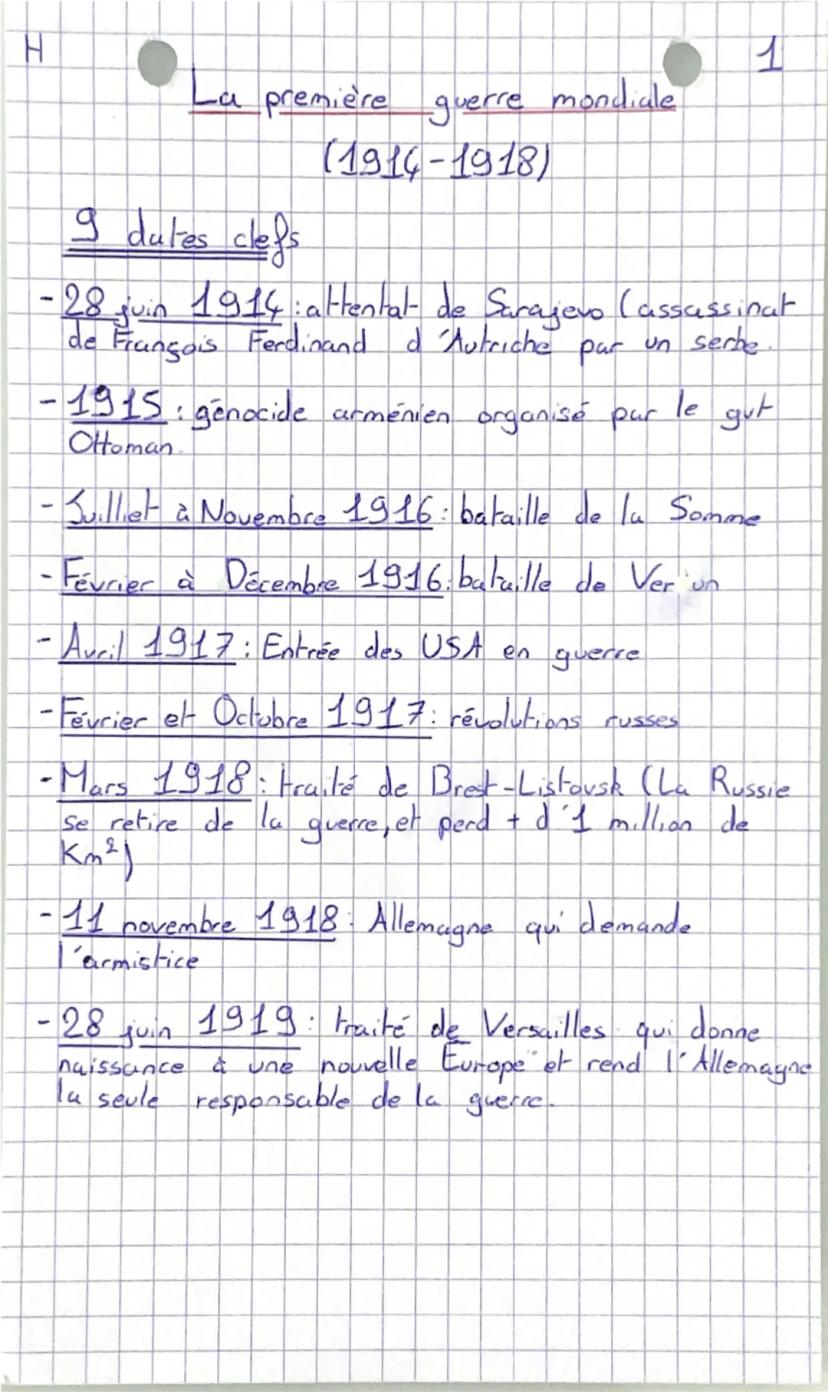 H
1
La première guerre mondiale
(1914-1918)
9 dates clefs
- 28 juin 1914 : attentat de Sarajevo (assassinat
de François Ferdinand d'Autriche par un serbe.
- 1915 : génocide arménien organisé par le gvt
Ottoman.
- Juillet à Novembre 1916 : bataille de la Somme
- Février à Décembre 1916 : bataille de
- Avril 1917 : Entrée des USA en guerre
- Février et Octobre 1917 : révolutions russes
- Mars 1918 : traité de Brest-Listovsk (La Russie
se retire de la guerre, et perd + d'1 million de
Km²)
- 11 novembre 1918 : Allemagne qui demande
l'armistice
- 28 juin 1919 : traité de Versailles qui donne
naissance à une nouvelle Europe et rend l'Allemagne
la seule responsable de la guerre.